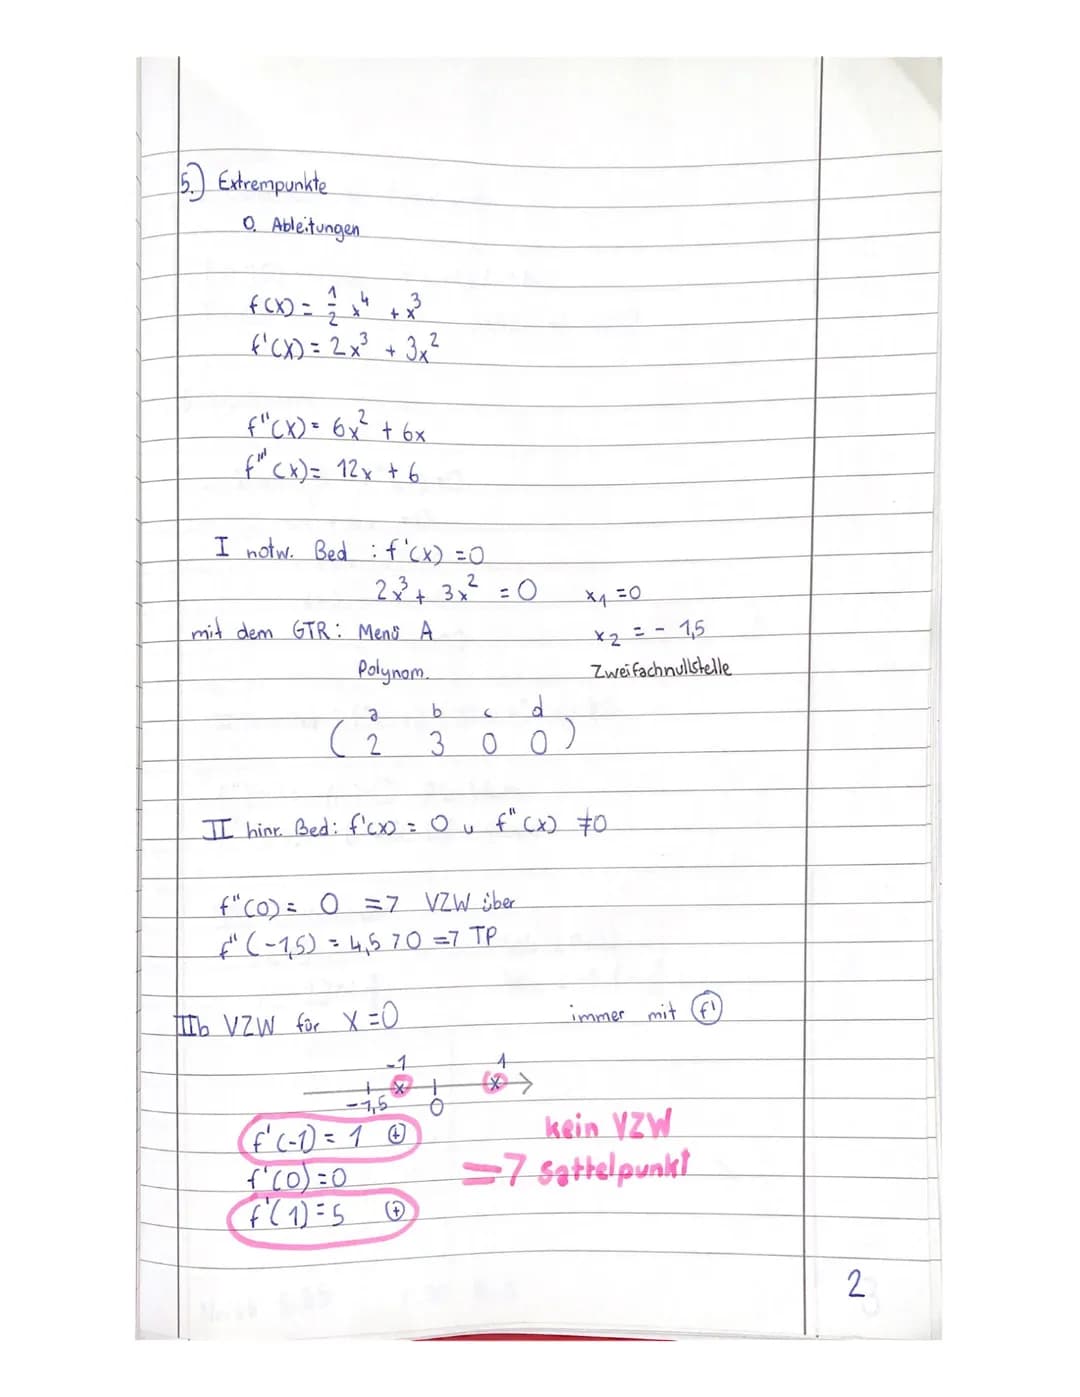 5.) Extrempunkte
0. Ableitungen
f(x) = 1/2 x^4 + x^3
f'(x) = 2x^3 + 3x^2
f''(x) = 6x^2 + 6x
f'''(x) = 12x + 6
I notw. Bed : f'(x) = 0
2x^3 + 3x^2 = 0 x1 = 0
mit dem GTR: Menü A x2 = - 1,5
Polynom. Zweifachnullstelle
a b c d
(2 3 0 0)
II hinr. Bed: f'(x) = 0 u f''(x) ≠ 0
f''(0) = 0 => VZW über
f''(-1,5) = 4,5 > 0 => TP
IIb VZW für x = 0 immer mit f'
-1 1
x x
-1,5 0
f'(-1) = 1 (+) kein VZW
f'(0) = 0 => Sattelpunkt
f'(1) = 5 (+)
2